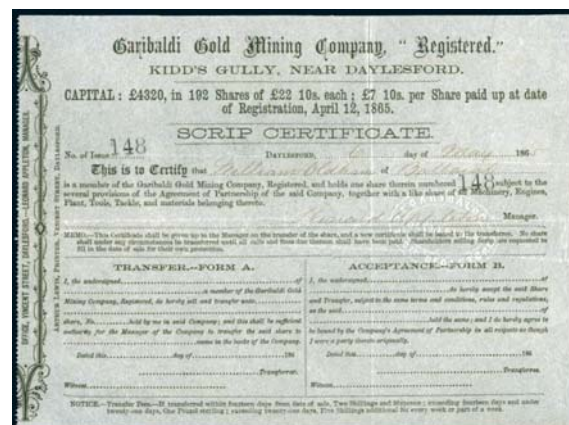 Garibaldi Gold Mining Company, "Registered."
KIDD'S GULLY, NEAR DAYLESFORD.
CAPITAL: £4320, in 192 Shares of £22 10s. each; £7 10s. per Share paid up at date
of Registration, April 12, 1865.
SCRIP CERTIFICATE.
No. of Issue 148 DAYLESFORD, 6 day of May 186
This is to Certify that William Oldham of
is a member of the Garibaldi Gold Mining Company, Registered, and holds one share therein numbered 148 subject to the
several provisions of the Agreement of Partnership of the said Company, together with a like share of all Machinery, Engines,
Plant, Tools, Tackle, and materials belonging thereto.
Leonard Appleton Manager.
MEMO.—This Certificate shall be given up to the Manager on the transfer of the share, and a new certificate shall be issued to the transferree. No share
shall under any circumstances be transferred until all calls and fines due thereon shall have been paid. Shareholders selling scrip are requested to
fill in the date of sale for their own protection.
TRANSFER.—FORM A.
I, the undersigned of
a member of the Garibaldi Gold
Mining Company, Registered, do hereby sell and transfer unto
of
share, No. held by me in said Company; and this shall be sufficient
authority for the Manager of the Company to transfer the said share to
name in the books of the Company.
Dated this day of 186
Transferror.
Witness
ACCEPTANCE.—FORM B.
I, the undersigned of
do hereby accept the said Share
and Transfer, subject to the same terms and conditions, rules and regulations,
as the said of
held the same; and I do hereby agree to
be bound by the Company's Agreement of Partnership in all respects as though
I were a party thereto originally.
Dated this day of 186
Transferree.
Witness
NOTICE.—Transfer Fees.—If transferred within fourteen days from date of sale, Two Shillings and Sixpence; exceeding fourteen days and under
twenty-one days, One Pound sterling; exceeding twenty-one days, Five Shillings additional for every week or part of a week.
OFFICE, VINCENT STREET, DAYLESFORD.—LEONARD APPLETON, MANAGER.
ARTHUR LEWIS, PRINTER, VINCENT STREET, DAYLESFORD.